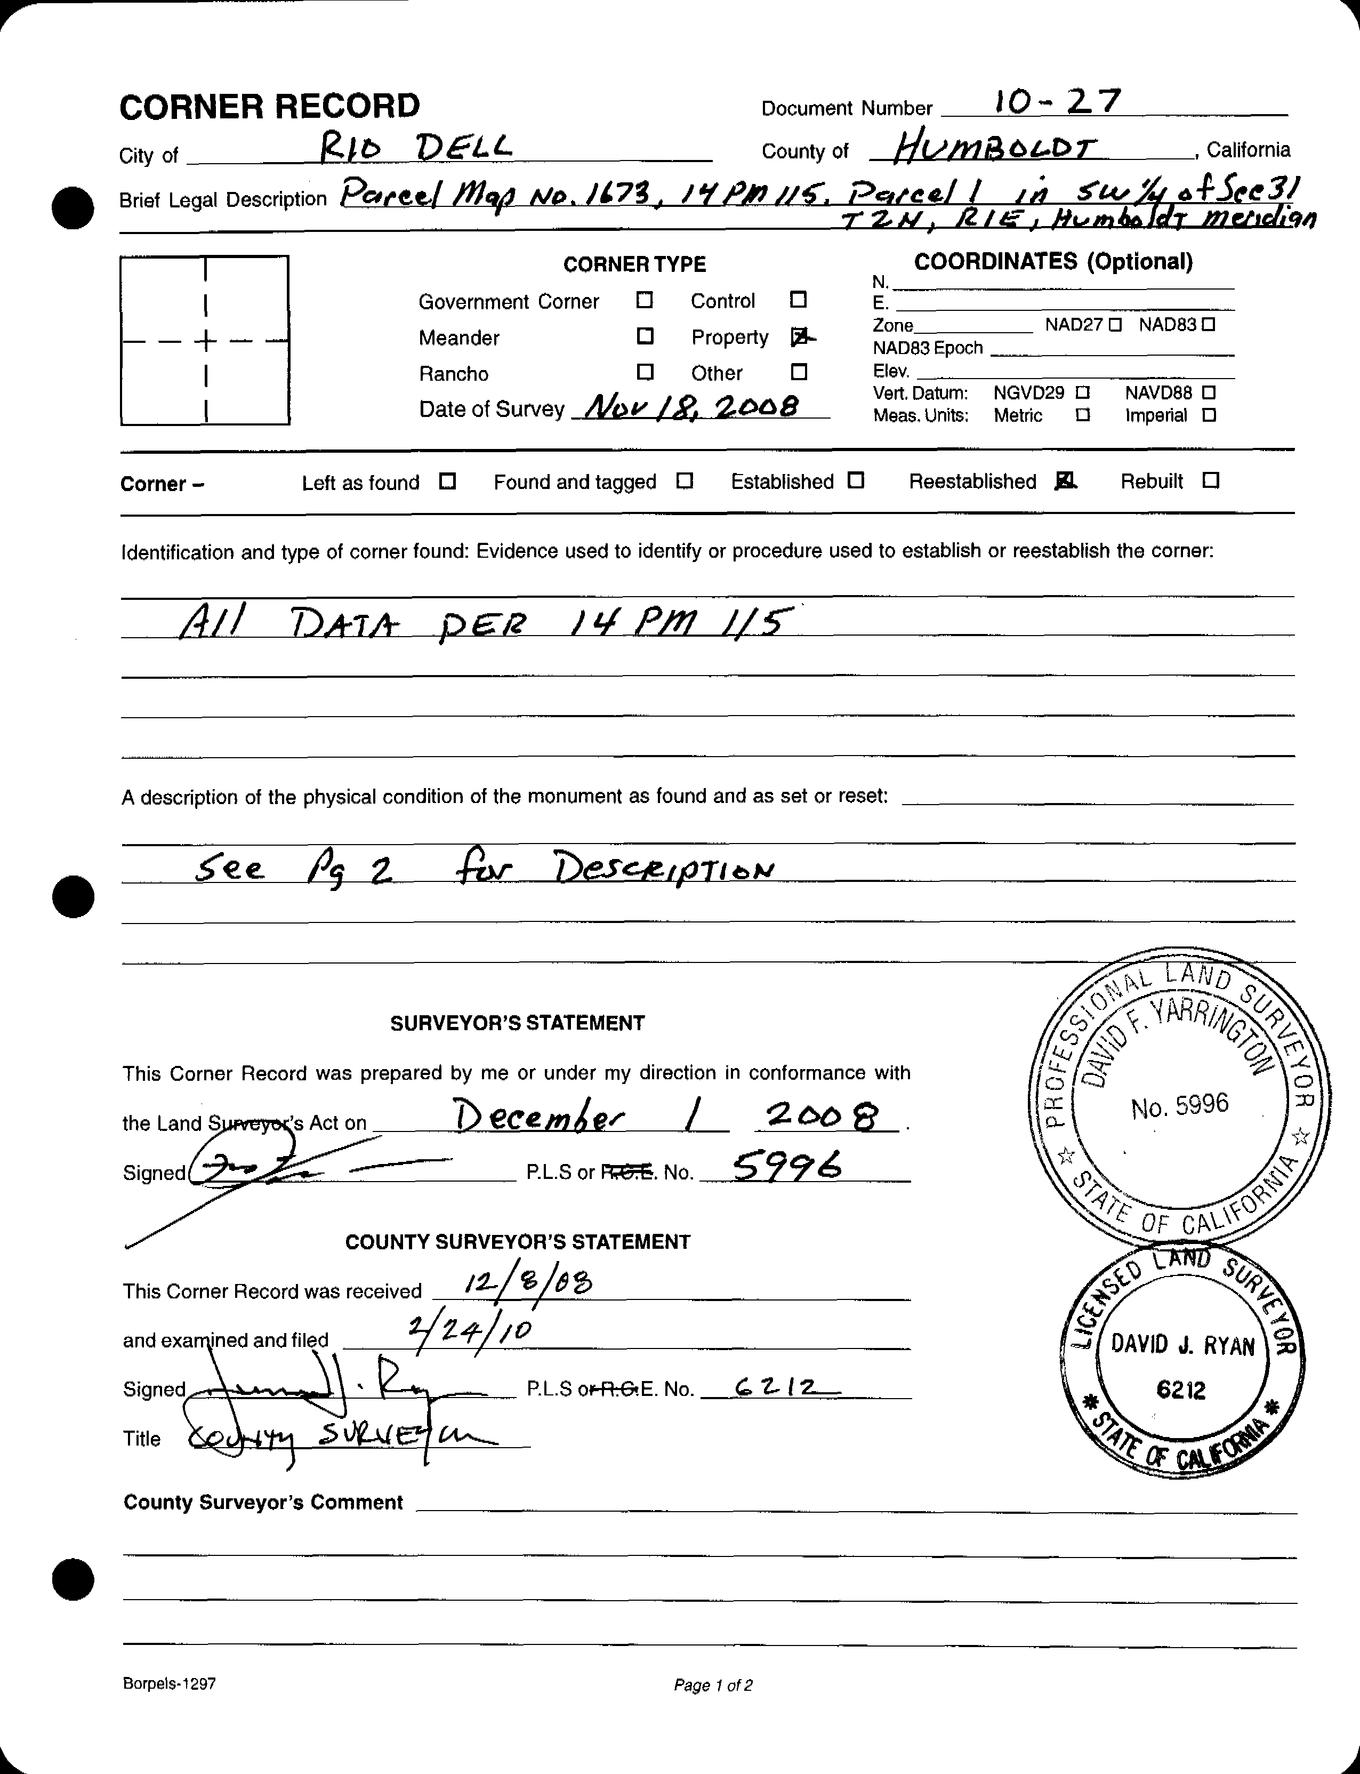 CORNER RECORD
Document Number 10-27
City of RIO DELL
County of HUMBOLDT, California
Brief Legal Description Parcel Map No. 1673, 14 PM 115, Parcel 1 in SW 1/4 of Sec 31
T2N, R1E, Humboldt Meridian
CORNER TYPE
COORDINATES (Optional)
Government Corner □ Control □
Meander □ Property ☒
Rancho □ Other □
Date of Survey Nov 18, 2008
N.
E.
Zone NAD27 □ NAD83 □
NAD83 Epoch
Elev.
Vert. Datum: NGVD29 □ NAVD88 □
Meas. Units: Metric □ Imperial □
Corner – Left as found □ Found and tagged □ Established □ Reestablished ☒ Rebuilt □
Identification and type of corner found: Evidence used to identify or procedure used to establish or reestablish the corner:
All DATA PER 14 PM 115
A description of the physical condition of the monument as found and as set or reset:
See Pg 2 for DESCRIPTION
SURVEYOR'S STATEMENT
This Corner Record was prepared by me or under my direction in conformance with
the Land Surveyor's Act on December 1 2008.
Signed P.L.S or R.C.E. No. 5996
PROFESSIONAL LAND SURVEYOR
DAVID F. YARRINGTON
No. 5996
STATE OF CALIFORNIA
COUNTY SURVEYOR'S STATEMENT
This Corner Record was received 12/8/08
and examined and filed 2/24/10
Signed P.L.S or R.C.E. No. 6212
Title COUNTY SURVEYOR
LICENSED LAND SURVEYOR
DAVID J. RYAN
6212
STATE OF CALIFORNIA
County Surveyor's Comment
Borpels-1297
Page 1 of 2